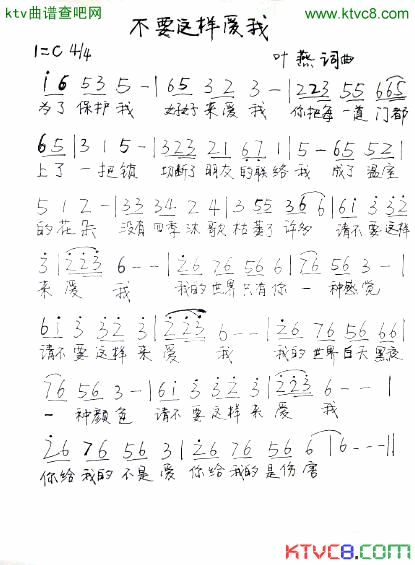 ktv曲谱查吧网
www.ktvc8.com
www.ktvc8.com
不要这样爱我
1=C 4/4
叶燕 词曲
i 6 5 3 5 - | 6 5 3 2 3 - | 2 2 3 5 5 6 6 5
为了保护我 好好来爱我 你把每一道门都
6 5 | 3 1 5 - | 3 2 3 2 1 6 7 1 | 5 - 6 5 5 2 |
上了一把锁 切断了朋友的联络我 成了温室
5 1 2 - | 3 3 3 4 2 4 | 3 5 5 3 6 6 | 6 i 3 3 2
的花朵 没有四季沐歌枯萎了许多 请不要这样
3 | 2 2 3 6 - - | 2 6 7 6 5 6 6 | 7 6 5 6 3 - |
来爱我 我的世界只有你 一种感觉
6 i 3 3 2 3 | 2 2 3 6 - - | 2 6 7 6 5 6 6 6 |
请不要这样来爱 我 我的世界白天黑夜
7 6 5 6 3 - | 6 i 3 3 2 3 | 2 2 3 6 - - |
一种颜色 请不要这样来爱 我
2 6 7 6 5 6 3 | 2 6 7 6 5 6 6 | 6 - - - ||
你给我的不是爱 你给我的是伤害
KTVC8.com